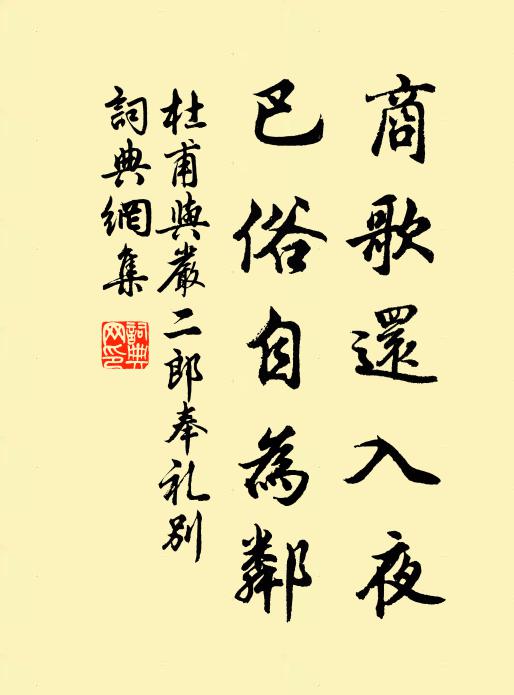 商歌還入夜
巴俗自為鄰
杜甫與嚴二郎奉礼別
詞典網集
詞典網印